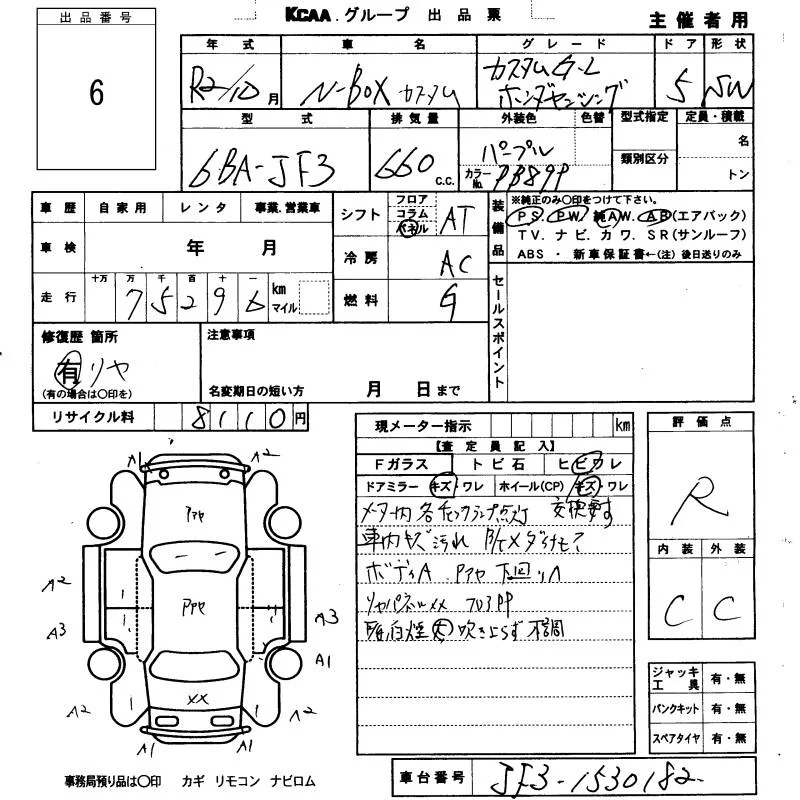 出品番号
KCAA.グループ 出品票
主催者用
6
年式 車名 グレード ドア 形状
R2/10月 N-BOX カスタム カスタム G-L 5 SW
ホンダセンシング
型式 排気量 外装色 色替 型式指定 定員・積載
6BA-JF3 660 c.c. パープル 名
カラーNo. PB89P 類別区分 トン
車歴 自家用 レンタ 事業.営業車
シフト フロア コラム パネル AT
装備品 ※純正のみ〇印をつけて下さい。
PS. PW. 純AW. AB(エアバック)
TV. ナビ. カワ. SR(サンルーフ)
ABS ・ 新車保証書←(注) 後日送りのみ
車検 年 月
冷房 AC
走行 十万 万 千 百 十 一 km マイル
75296
燃料 G
セールスポイント
修復歴 箇所
有 リヤ
(有の場合は〇印を)
注意事項
名変期日の短い方 月 日まで
リサイクル料 8110円
現メーター指示 km
【査定員記入】
Fガラス トビ石 ヒビワレ
ドアミラー キズ・ワレ ホイール(CP) キズ・ワレ
メーター内各チェックランプ点灯 交換要す
車内キズ汚れ
ボディA 下回り
リヤパネルXX
吹き上らず 不調
評価点
R
内装 外装
C C
ジャッキ工具 有・無
パンクキット 有・無
スペアタイヤ 有・無
A1 A2
A2
A3 A3
A1
A2 A2
XX
A1 A1
事務局預り品は〇印 カギ リモコン ナビロム
車台番号 JF3-1530182